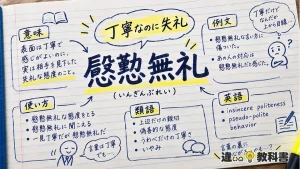 丁寧なのに失礼
慇懃無礼
(いんぎんぶれい)
意味
表面は丁寧で
感じがよいのに、
実は相手を見下した
失礼な態度のこと。
使い方
・慇懃無礼な態度をとる
・慇懃無礼に聞こえる
・一見丁寧だが慇懃無礼だ
言葉は丁寧
でも…
類語
・上辺だけの親切
・うわべだけの丁寧さ
・いやみ
例文
・慇懃無礼な言い方に
傷ついた。
・あの人の対応は
慇懃無礼だと感じた。
丁寧だけど
なんだか
上から目線…
英語
・insincere politeness
・pseudo-polite
behavior
言葉の裏に
違和感教科書